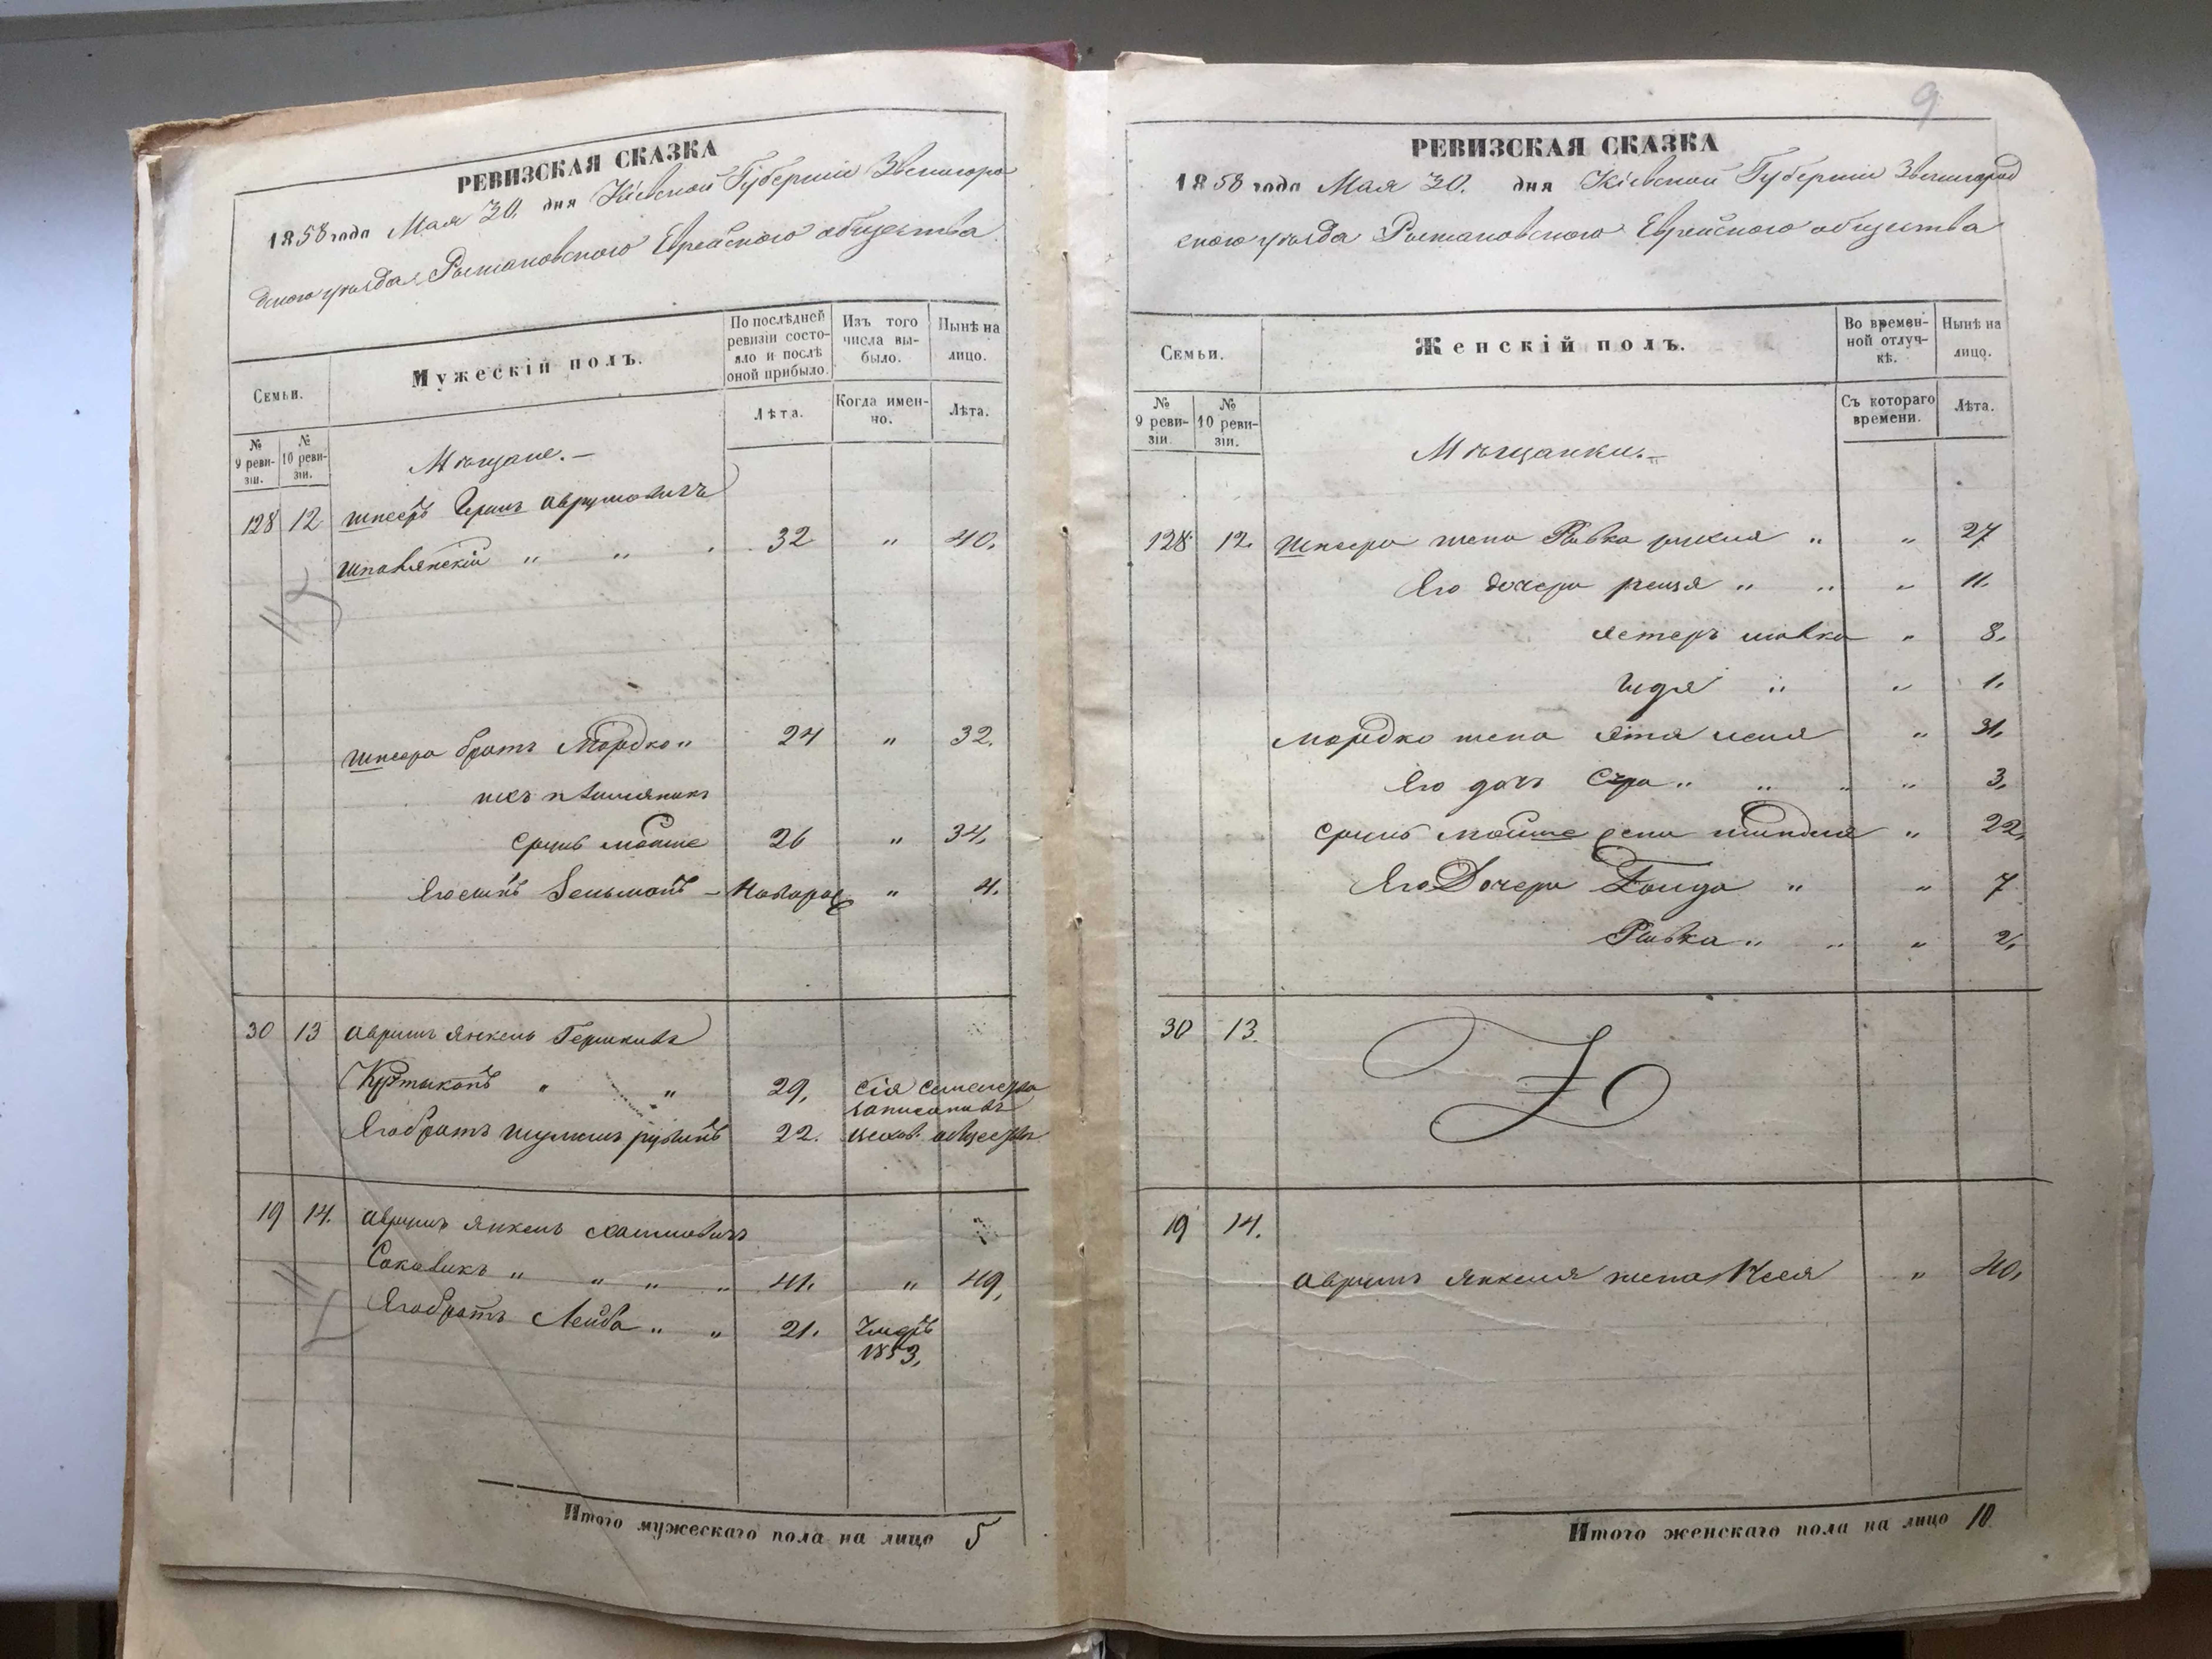 РЕВИЗСКАЯ СКАЗКА
1858 года Мая 30. дня Кіевской Губерніи Звенигоро
дского уѣзда Рыжановского Еврейского общества
Семьи.
Мужескій полъ.
По послѣдней ревизіи состояло и послѣ оной прибыло.
Изъ того числа выбыло.
Нынѣ на лицо.
№ 9 ревизіи.
№ 10 ревизіи.
Лѣта.
Когда именно.
Лѣта.
Мѣщане.
128 12 Шпееръ Гершъ Аврумовичъ
Шполянскій " " 32 " 40.
Шпеера братъ Мордко " 24 " 32.
ихъ племяникъ
Сруль Мойше 26 " 34.
Его сынъ Зельманъ - Новорож " 4.
30 13 Аврумъ Янкель Гершковъ
" " 29,
Его братъ Шулимъ Рувинъ 22.
19 14. Аврумъ Янкель Хаимовичъ
Соковикъ " " " " 41. " 49,
Его братъ Лейба " " 21. Умеръ
1853,
Итого мужескаго пола на лицо 5
9
РЕВИЗСКАЯ СКАЗКА
1858 года Мая 30. дня Кіевской Губерніи Звенигород
ского уѣзда Рыжановского Еврейского общества
Семьи.
Женскій полъ.
Во временной отлучкѣ.
Нынѣ на лицо.
№ 9 ревизіи.
№ 10 ревизіи.
Съ котораго времени.
Лѣта.
Мѣщанки.
128 12. Шпеера жена Ривка " " 27
Его дочери " " " 11.
Естеръ " 8.
" " 1.
Мордко жена " 31,
Его дочь Сура " " " " 3,
Сруль Мойше жена " 22,
Его Дочери " " 7
Ривка " " " 2,
30 13.
19 14.
Аврумъ Янкеля жена " 40,
Итого женскаго пола на лицо 10